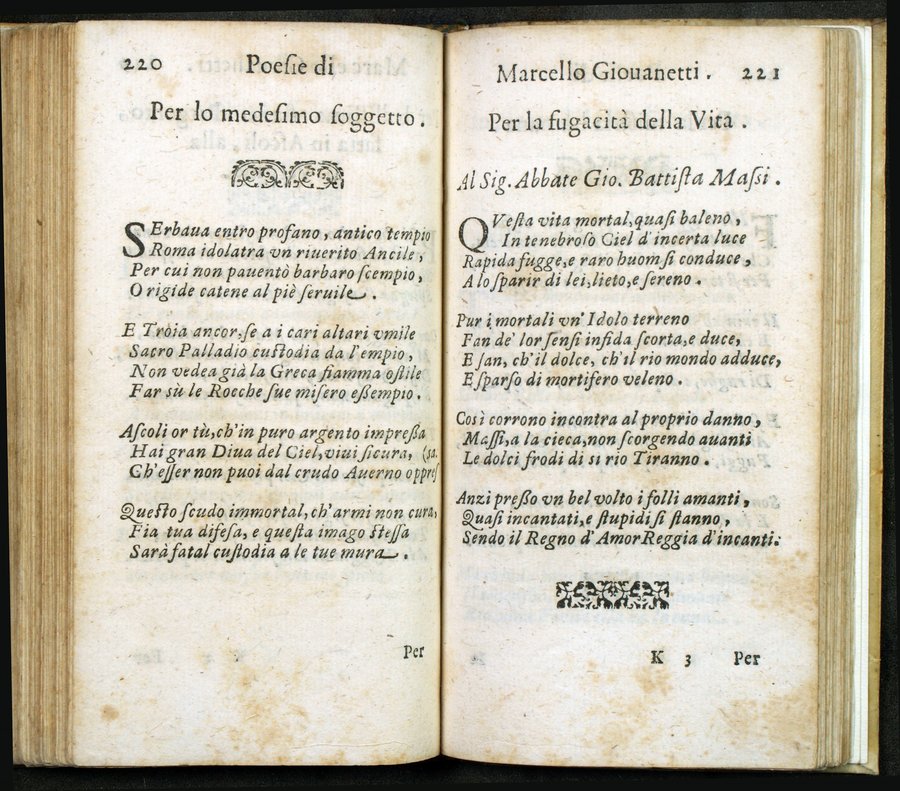 220 Poeſie di
Per lo medeſimo ſoggetto.
SErbaua entro profano, antico tempio
Roma idolatra vn riuerito Ancile,
Per cui non pauentò barbaro ſcempio,
O rigide catene al piè ſeruile.
E Troia ancor, ſe a i cari altari vmile
Sacro Palladio cuſtodia da l'empio,
Non vedea già la Greca fiamma oſtile
Far sù le Rocche ſue miſero eſſempio.
Aſcoli or tù, ch'in puro argento impreſſa
Hai gran Diua del Ciel, viui ſicura, (ſa.
Ch'eſſer non puoi dal crudo Auerno oppreſ
Queſto ſcudo immortal, ch'armi non cura,
Fia tua difeſa, e queſta imago ſteſſa
Sarà fatal cuſtodia a le tue mura.
Per
Marcello Giouanetti. 221
Per la fugacità della Vita.
Al Sig. Abbate Gio. Battiſta Maſsi.
QVeſta vita mortal, quaſi baleno,
In tenebroſo Ciel d'incerta luce
Rapida fugge, e raro huom ſi conduce,
A lo ſparir di lei, lieto, e ſereno.
Pur i mortali vn' Idolo terreno
Fan de' lor ſenſi infida ſcorta, e duce,
E ſan, ch'il dolce, ch'il rio mondo adduce,
E ſparſo di mortifero veleno.
Così corrono incontra al proprio danno,
Maſſi, a la cieca, non ſcorgendo auanti
Le dolci frodi di sì rio Tiranno.
Anzi preſſo vn bel volto i folli amanti,
Quaſi incantati, e ſtupidi ſi ſtanno,
Sendo il Regno d'Amor Reggia d'incanti.
K 3 Per